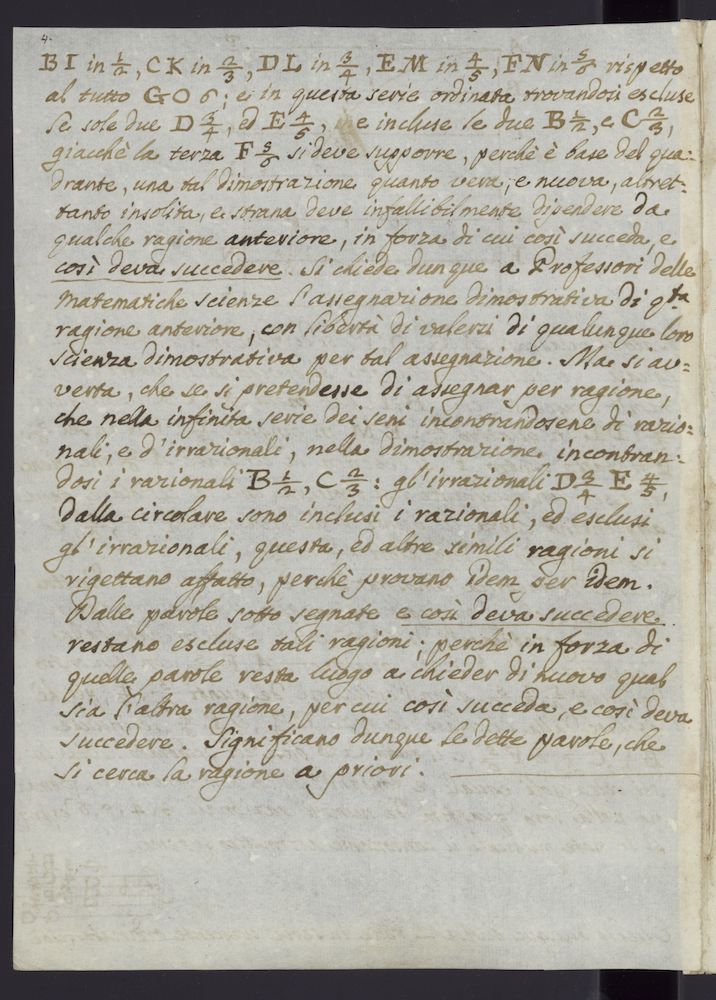 4.
BI in 1/2, CK in 2/3, DL in 3/4, EM in 4/5, FN in 5/6 rispetto
al tutto GO 6; e in questa serie ordinata trovandosi escluse
le sole due D 3/4, ed E 4/5, e incluse le due B 1/2, e C 2/3,
giacchè la terza F 5/6 si deve supporre, perchè è base del qua=
drante, una tal dimostrazione quanto vera, e nuova, altret=
tanto insolita, e strana deve infallibilmente dipendere da
qualche ragione anteriore, in forza di cui così succeda, e
così deva succedere. Si chiede dunque a Professori delle
Matematiche scienze l'assegnazione dimostrativa di qta
ragione anteriore, con libertà di valersi di qualunque loro
scienza dimostrativa per tal assegnazione. Ma si av=
verta, che se si pretendesse di assegnar per ragione,
che nella infinita serie dei seni incontrandosene di razio=
nali, e d'irrazionali, nella dimostrazione incontran=
dosi i razionali B 1/2, C 2/3: gl'irrazionali D 3/4 E 4/5,
dalla circolare sono inclusi i razionali, ed esclusi
gl'irrazionali, questa, ed altre simili ragioni si
rigettano affatto, perchè provano idem per idem.
Dalle parole sotto segnate e così deva succedere
restano escluse tali ragioni; perchè in forza di
quelle parole resta luogo a chieder di nuovo qual
sia l'altra ragione, per cui così succeda, e così deva
succedere. Significano dunque le dette parole, che
si cerca la ragione a priori.